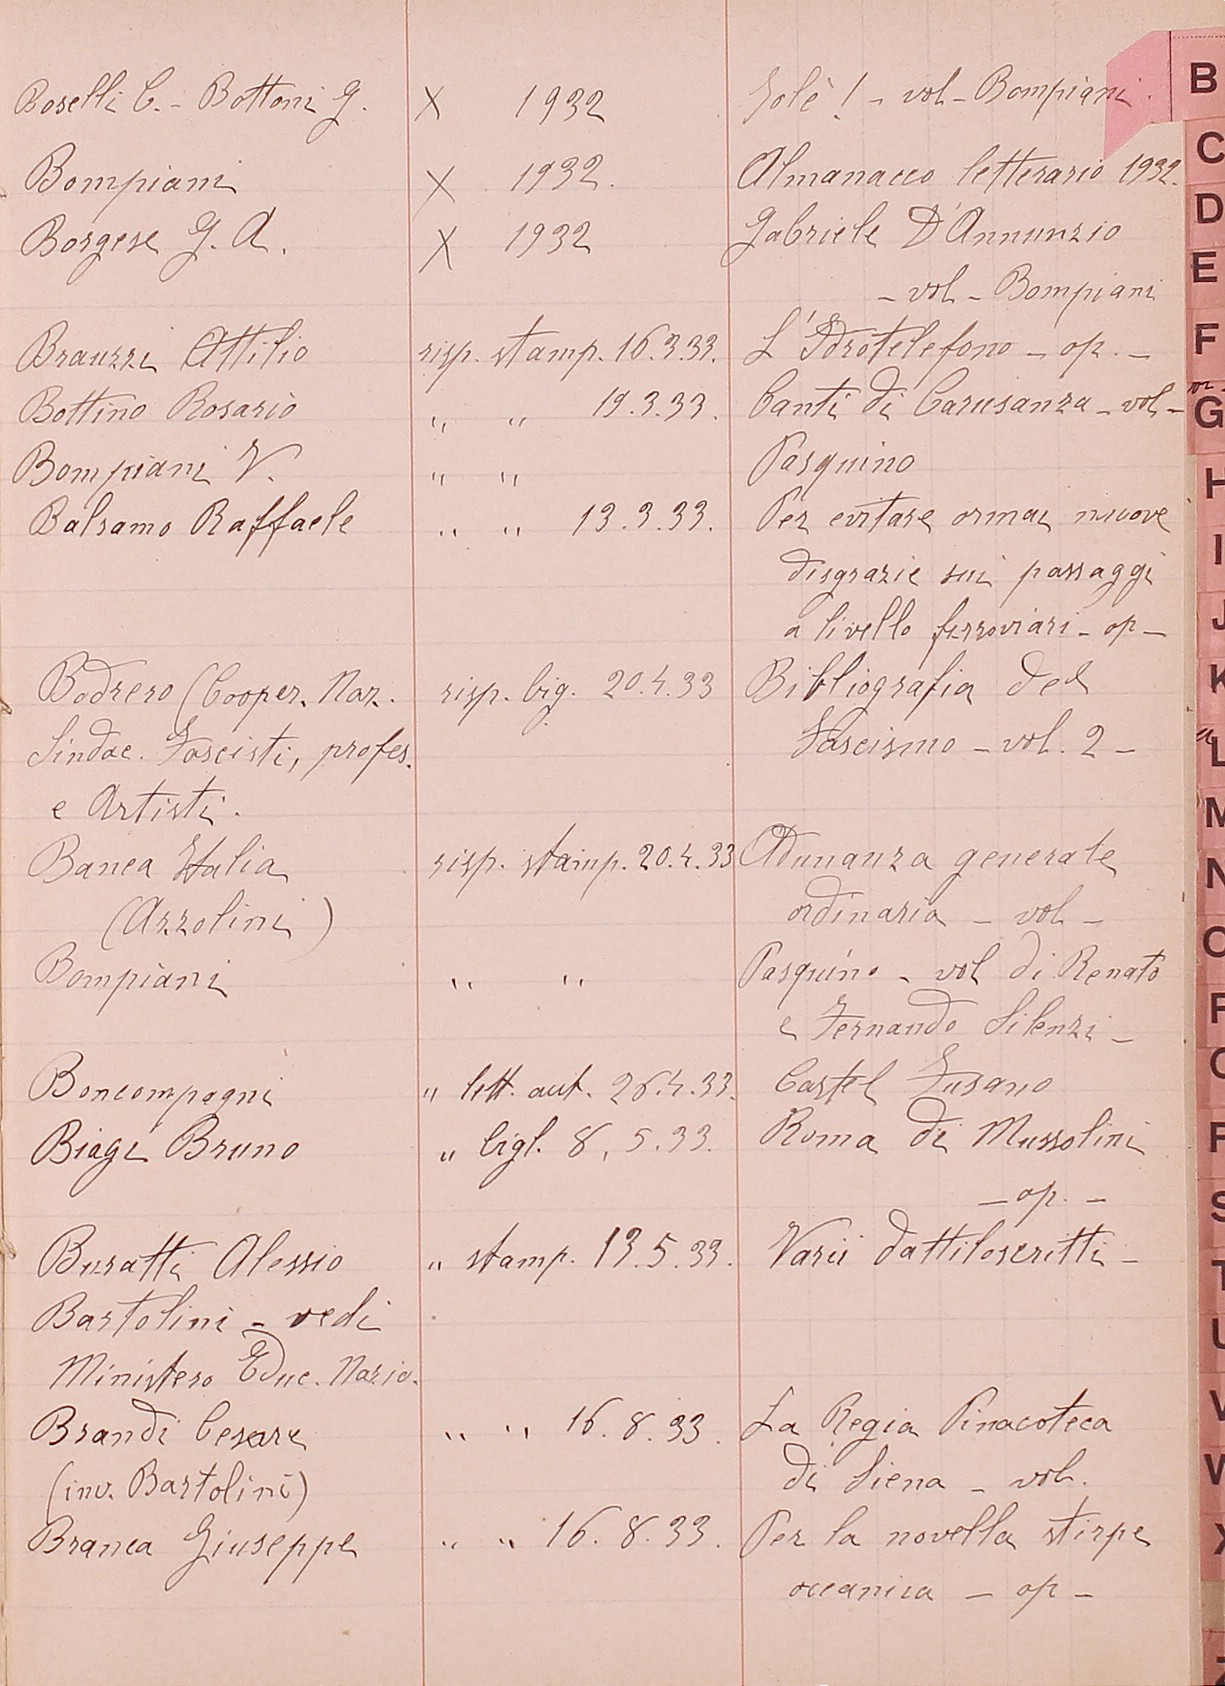 Boselli C. - Bottoni G. X 1932 Jolè! - vol - Bompiani. B
C
Bompiani X 1932. Almanacco letterario 1932.
D
Borgese G. A. X 1932 Gabriele D'Annunzio
E
- vol - Bompiani
F
Brauzzi Attilio risp. stamp. 16.3.33. L'Idrotelefono - op. -
Bottino Rosario " " 19.3.33. Canti di Carusanza - vol -
G
Bompiani V. " " Pasquino
H
Balsamo Raffaele " " 13.3.33. Per evitare ormai nuove
I
disgrazie sui passaggi
J
a livello ferroviari - op -
K
Bodrero (Cooper. Naz. risp. big. 20.4.33 Bibliografia del
Sindac. Fascisti, profes. Fascismo - vol. 2 -
L
e Artisti.
M
Banca Italia risp. stamp. 20.4.33 Adunanza generale
N
(Azzolini) ordinaria - vol -
O
Bompiani " " Pasquino - vol di Renato
P
e Fernando Silenzi -
Boncompagni " lett. aut. 26.4.33. Castel Fusano
Biagi Bruno " bigl. 8.5.33. Roma di Mussolini
R
- op. -
S
Buratti Alessio " stamp. 13.5.33. Varii dattiloscritti -
T
Bartolini - vedi
U
Ministero Educ. Nazio.
V
Brandi Cesare " " 16.8.33. La Regia Pinacoteca
W
(inv. Bartolini) di Siena - vol.
X
Branca Giuseppe " " 16.8.33. Per la novella stirpe
oceanica - op -
Z